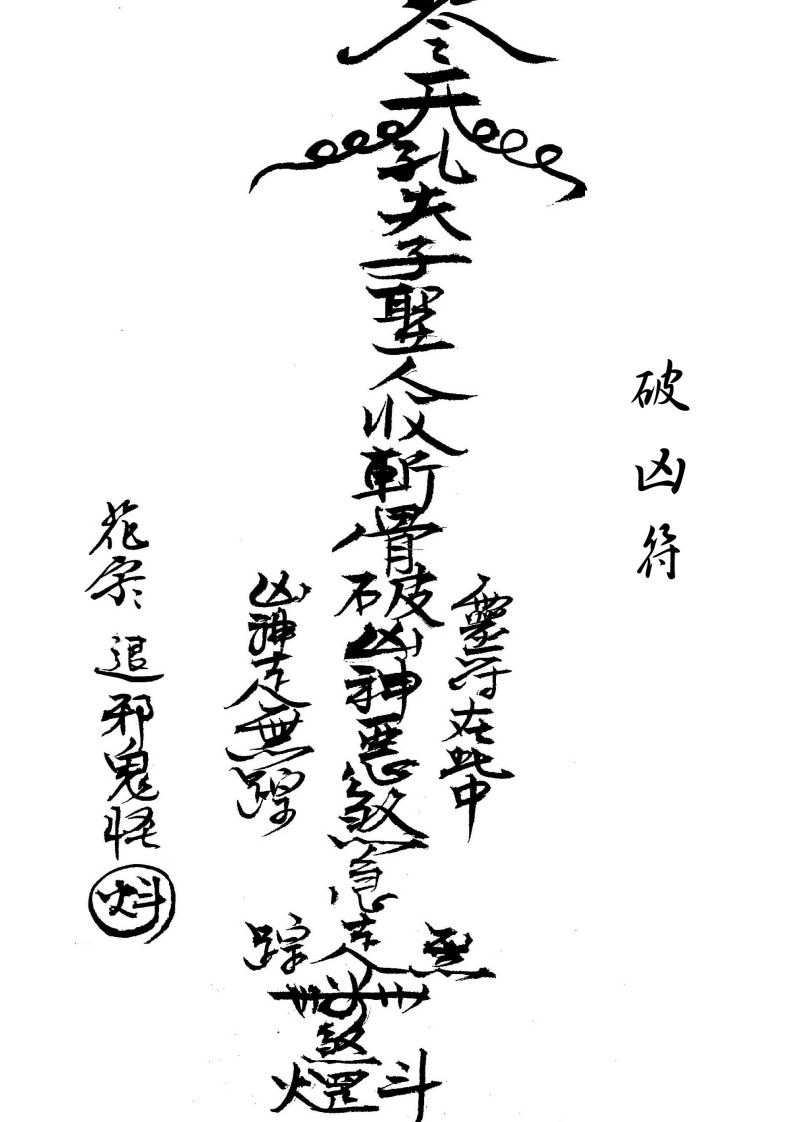 破凶符
靈符在此中
孔夫子聖人收斬骨破凶神惡煞急走無踪
凶神走無踪
花字退邪鬼怪